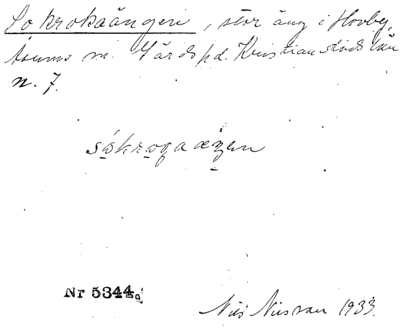 So krokaängen, stor äng i Hovby,
touns m. Gärds hd. Kristianstads län
n. 7.
såskrogaæŋen
Nr 5344a
Nils Nilsson 1933